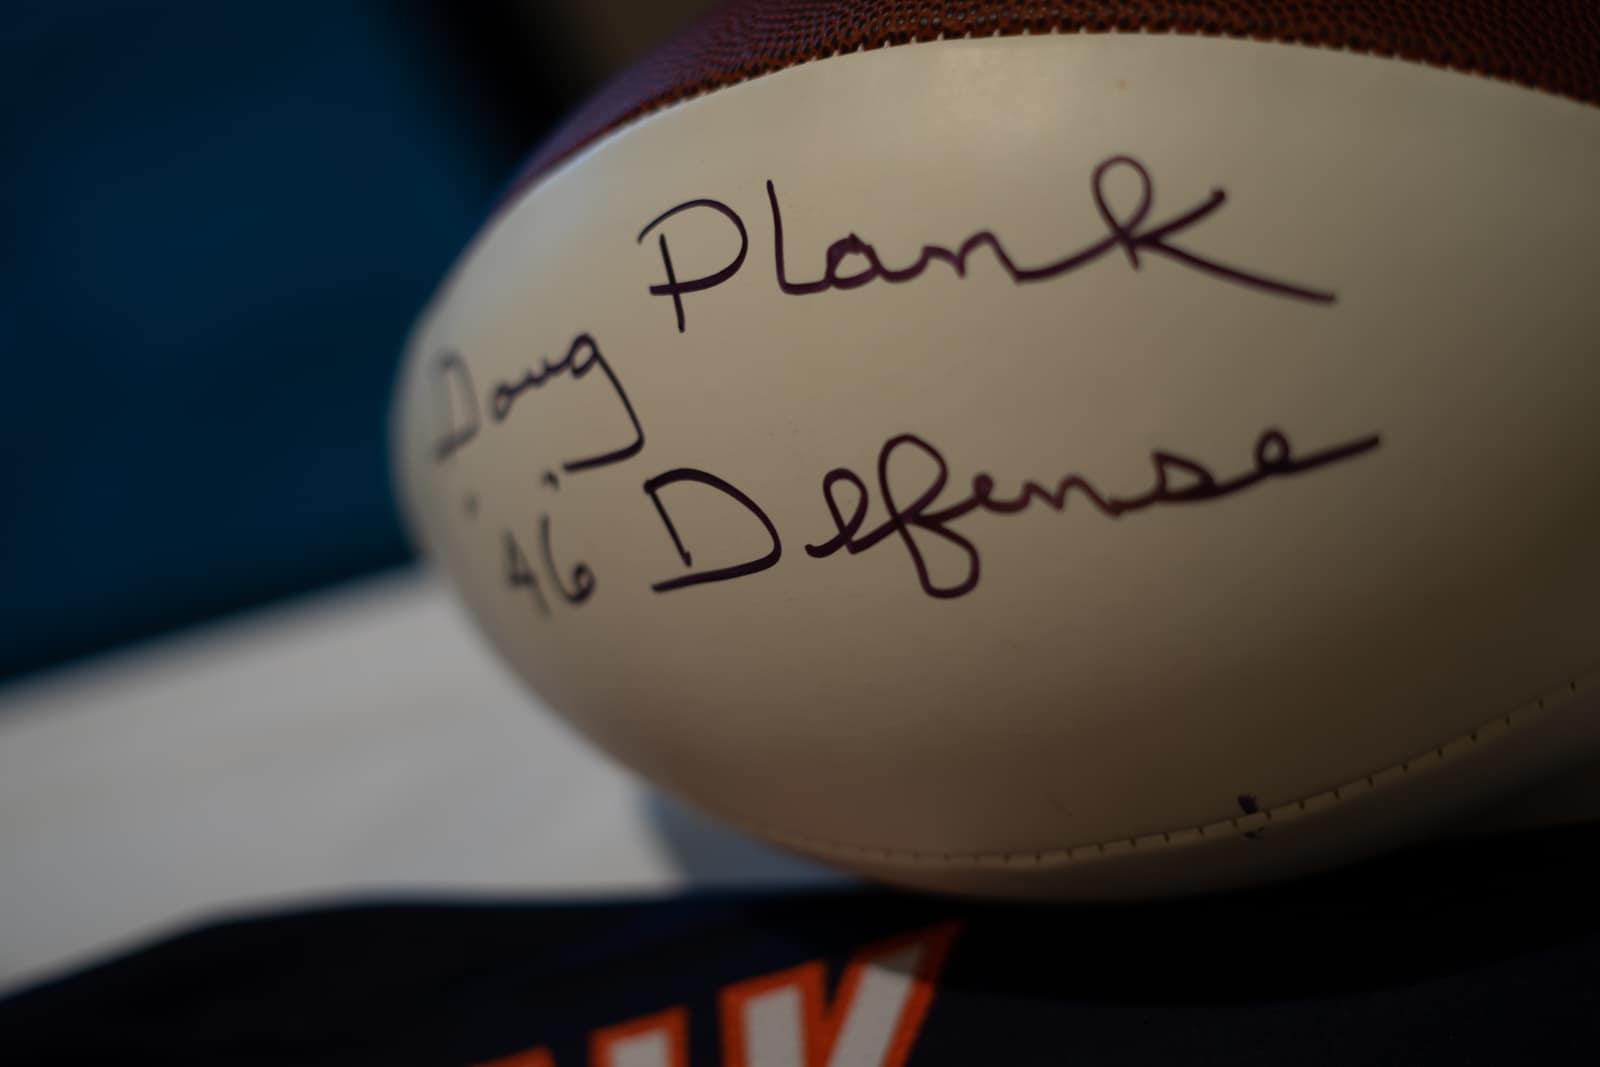 Doug Plank
"46" Defense
NK